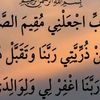 بِّ اجْعَلْنِي مُقِيمَ الصَّ
ن ذُرِّيَّتِي رَبَّنَا وَتَقَبَّلْ
رَبَّنَا اغْفِرْ لِي وَلِوَالِدَيَّ